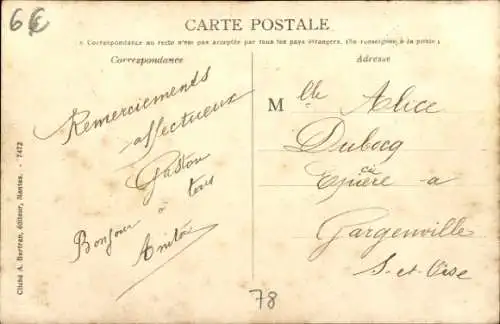 6€
CARTE POSTALE
« Correspondance au recto n'est pas acceptée par tous les pays étrangers. (Se renseigner à la poste)
Correspondance
Adresse
Remerciements
affectueux
Gaston
Bonjour à tous
Anita
Mlle Alice
Dubocq
à
Gargenville
S-et-Oise
78
Cliché A. Bertran, éditeur, Nantes. - 7472